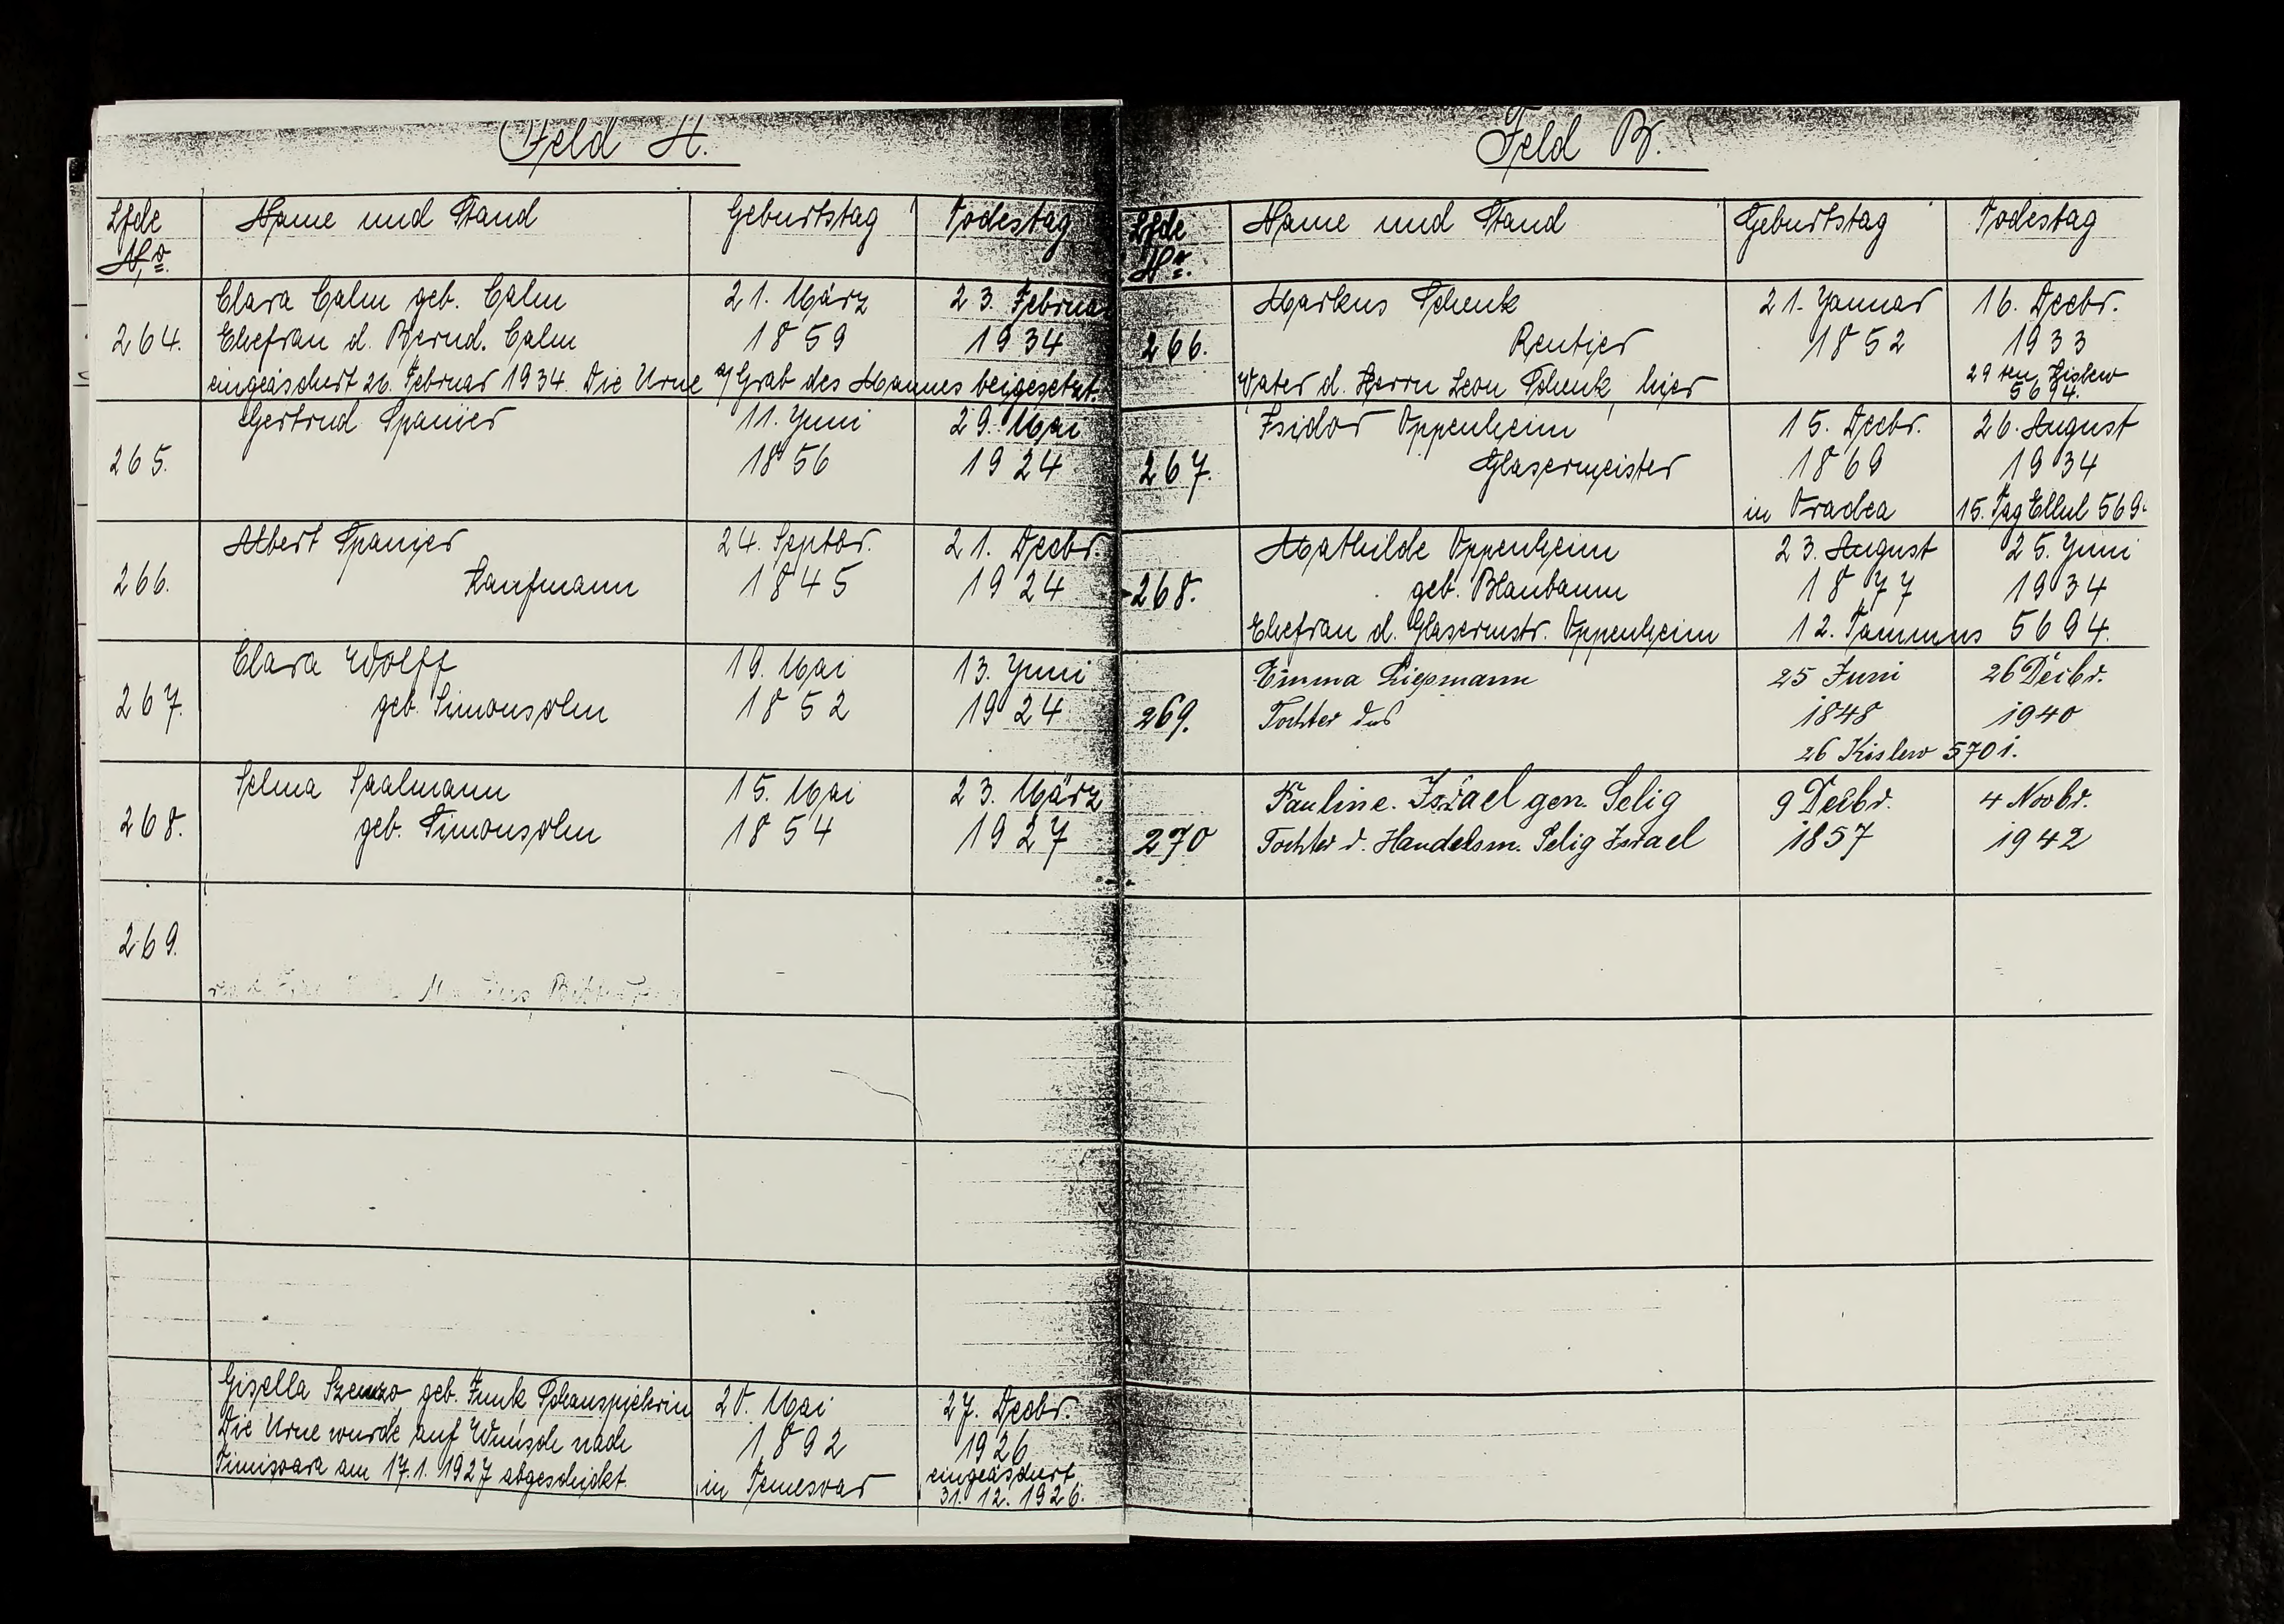 Feld A.
Lfde No.
Name und Stand
Geburtstag
Todestag
264.
Clara Calm geb. Calm
Ehefrau d. Bernd. Calm
eingeäschert 26. Februar 1934. Die Urne a/ Grab des Mannes beigesetzt.
21. März
1859
23. Februa
1934
265.
Gertrud Spanier
11. Juni
1856
29. Mai
1924
266.
Albert Spanier
Kaufmann
24. Septbr.
1845
21. Decbr.
1924
267.
Clara Wolff
geb. Simonsohn
19. Mai
1852
13. Juni
1924
268.
Selma Saalmann
geb. Simonsohn
15. Mai
1854
23. März
1927
269.
Gisella geb. Funk Schauspielerin
Die Urne wurde auf Wunsch nach
Timisoara am 17.1.1927 abgeschickt.
20. Mai
1892
in Temesvar
27. Decbr.
1926
eingeäschert
31. 12. 1926.
Feld B.
Lfde No.
Name und Stand
Geburtstag
Todestag
266.
Markus Schenk
Rentier
Vater d. Herrn Leon Schenk, hier
21. Januar
1852
16. Decbr.
1933
29 ten Kislew
5694.
267.
Isidor Oppenheim
Glasermeister
15. Decbr.
1869
in Oradea
26. August
1934
15. Tag Ellul 569
268.
Mathilde Oppenheim
geb. Blaubaum
Ehefrau d. Glasermstr. Oppenheim
23. August
1877
25. Juni
1934
12. Tammus 5694.
269.
Emma Liepmann
Tochter des
25 Juni
1848
26 Deibr.
1940
26 Kislew 5701.
270
Pauline. Israel gen. Selig
Tochter d. Handelsm. Selig Israel
9 Deibr.
1857
4 Novbr.
1942